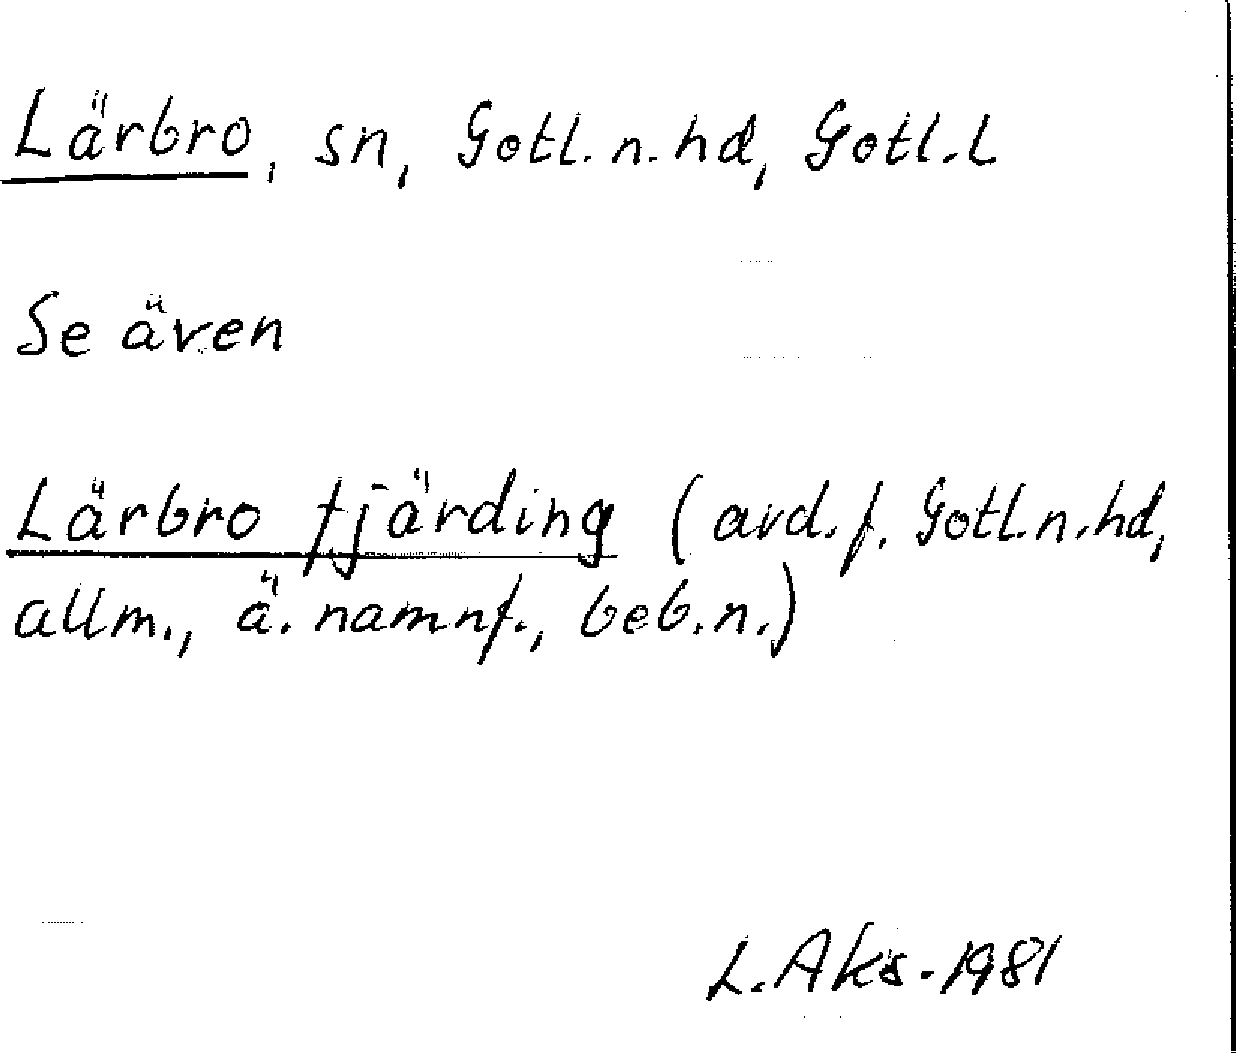 Lärbro, sn, Gotl.n.hd, Gotl.L
Se även
Lärbro fjärding (avd.f. Gotl.n.hd,
allm., ä. namnf., beb.n.)
L. Aks. 1981